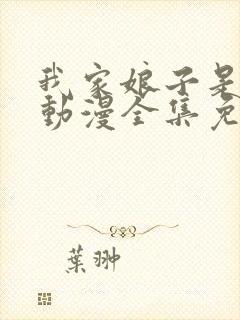 我家娘子是
動漫全集免
葉翀